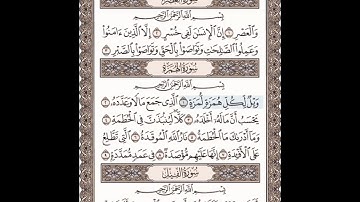 سُورَةُ العَصْرِ
بِسْمِ اللَّهِ الرَّحْمَٰنِ الرَّحِيمِ
وَالْعَصْرِ ۝١ إِنَّ الْإِنسَانَ لَفِي خُسْرٍ ۝٢ إِلَّا الَّذِينَ ءَامَنُوا
وَعَمِلُوا الصَّالِحَاتِ وَتَوَاصَوْا بِالْحَقِّ وَتَوَاصَوْا بِالصَّبْرِ ۝٣
سُورَةُ الهُمَزَةِ
بِسْمِ اللَّهِ الرَّحْمَٰنِ الرَّحِيمِ
وَيْلٌ لِّكُلِّ هُمَزَةٍ لُّمَزَةٍ ۝١ الَّذِي جَمَعَ مَالًا وَعَدَّدَهُ ۝٢
يَحْسَبُ أَنَّ مَالَهُ أَخْلَدَهُ ۝٣ كَلَّا لَيُنبَذَنَّ فِي الْحُطَمَةِ ۝٤
وَمَا أَدْرَاكَ مَا الْحُطَمَةُ ۝٥ نَارُ اللَّهِ الْمُوقَدَةُ ۝٦ الَّتِي تَطَّلِعُ
عَلَى الْأَفْئِدَةِ ۝٧ إِنَّهَا عَلَيْهِم مُّؤْصَدَةٌ ۝٨ فِي عَمَدٍ مُّمَدَّدَةٍ ۝٩
سُورَةُ الفِيلِ
بِسْمِ اللَّهِ الرَّحْمَٰنِ الرَّحِيمِ